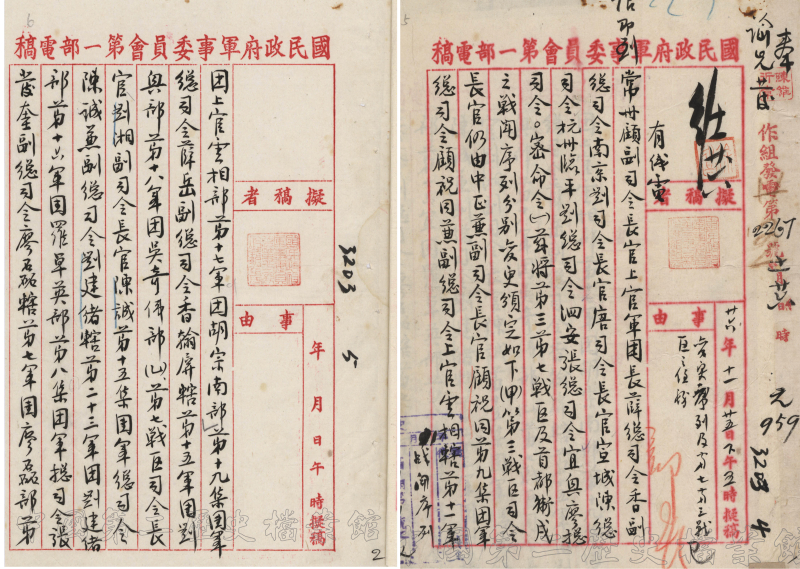 國民政府軍事委員會第一部電稿
作組發電第2257號
959
3203 4
擬稿者
事由
廿六年十一月廿五日下午五時擬稿
常州顧副司令長官上官軍團長薛總司令香副
總司令南京劉司令長官唐司令長官宣城陳總
司令杭州臨平劉總司令泗安張總司令宜興廖總
司令。密命令(一)茲將第三第七戰區及首都衛戍
之戰鬥序列分別變更頒定如下(甲)第三戰區司令
長官仍由中正兼副司令長官顧祝同第九集團軍
總司令顧祝同兼副總司令上官雲相轄第十一軍
戰鬥序列
國民政府軍事委員會第一部電稿
3203 5
擬稿者
事由
年月日午時擬稿
團上官雲相部第十七軍團胡宗南部第十九集團軍
總司令薛岳副總司令香翰屏轄第十五軍團劉
興部第十八軍團吳奇偉部(乙)第七戰區司令長
官劉湘副司令長官陳誠第十五集團軍總司令
陳誠兼副總司令劉建緒轄第二十三軍團劉建緒
部第十六軍團羅卓英部第八集團軍總司令張
發奎副總司令廖磊轄第七軍團廖磊部第
2